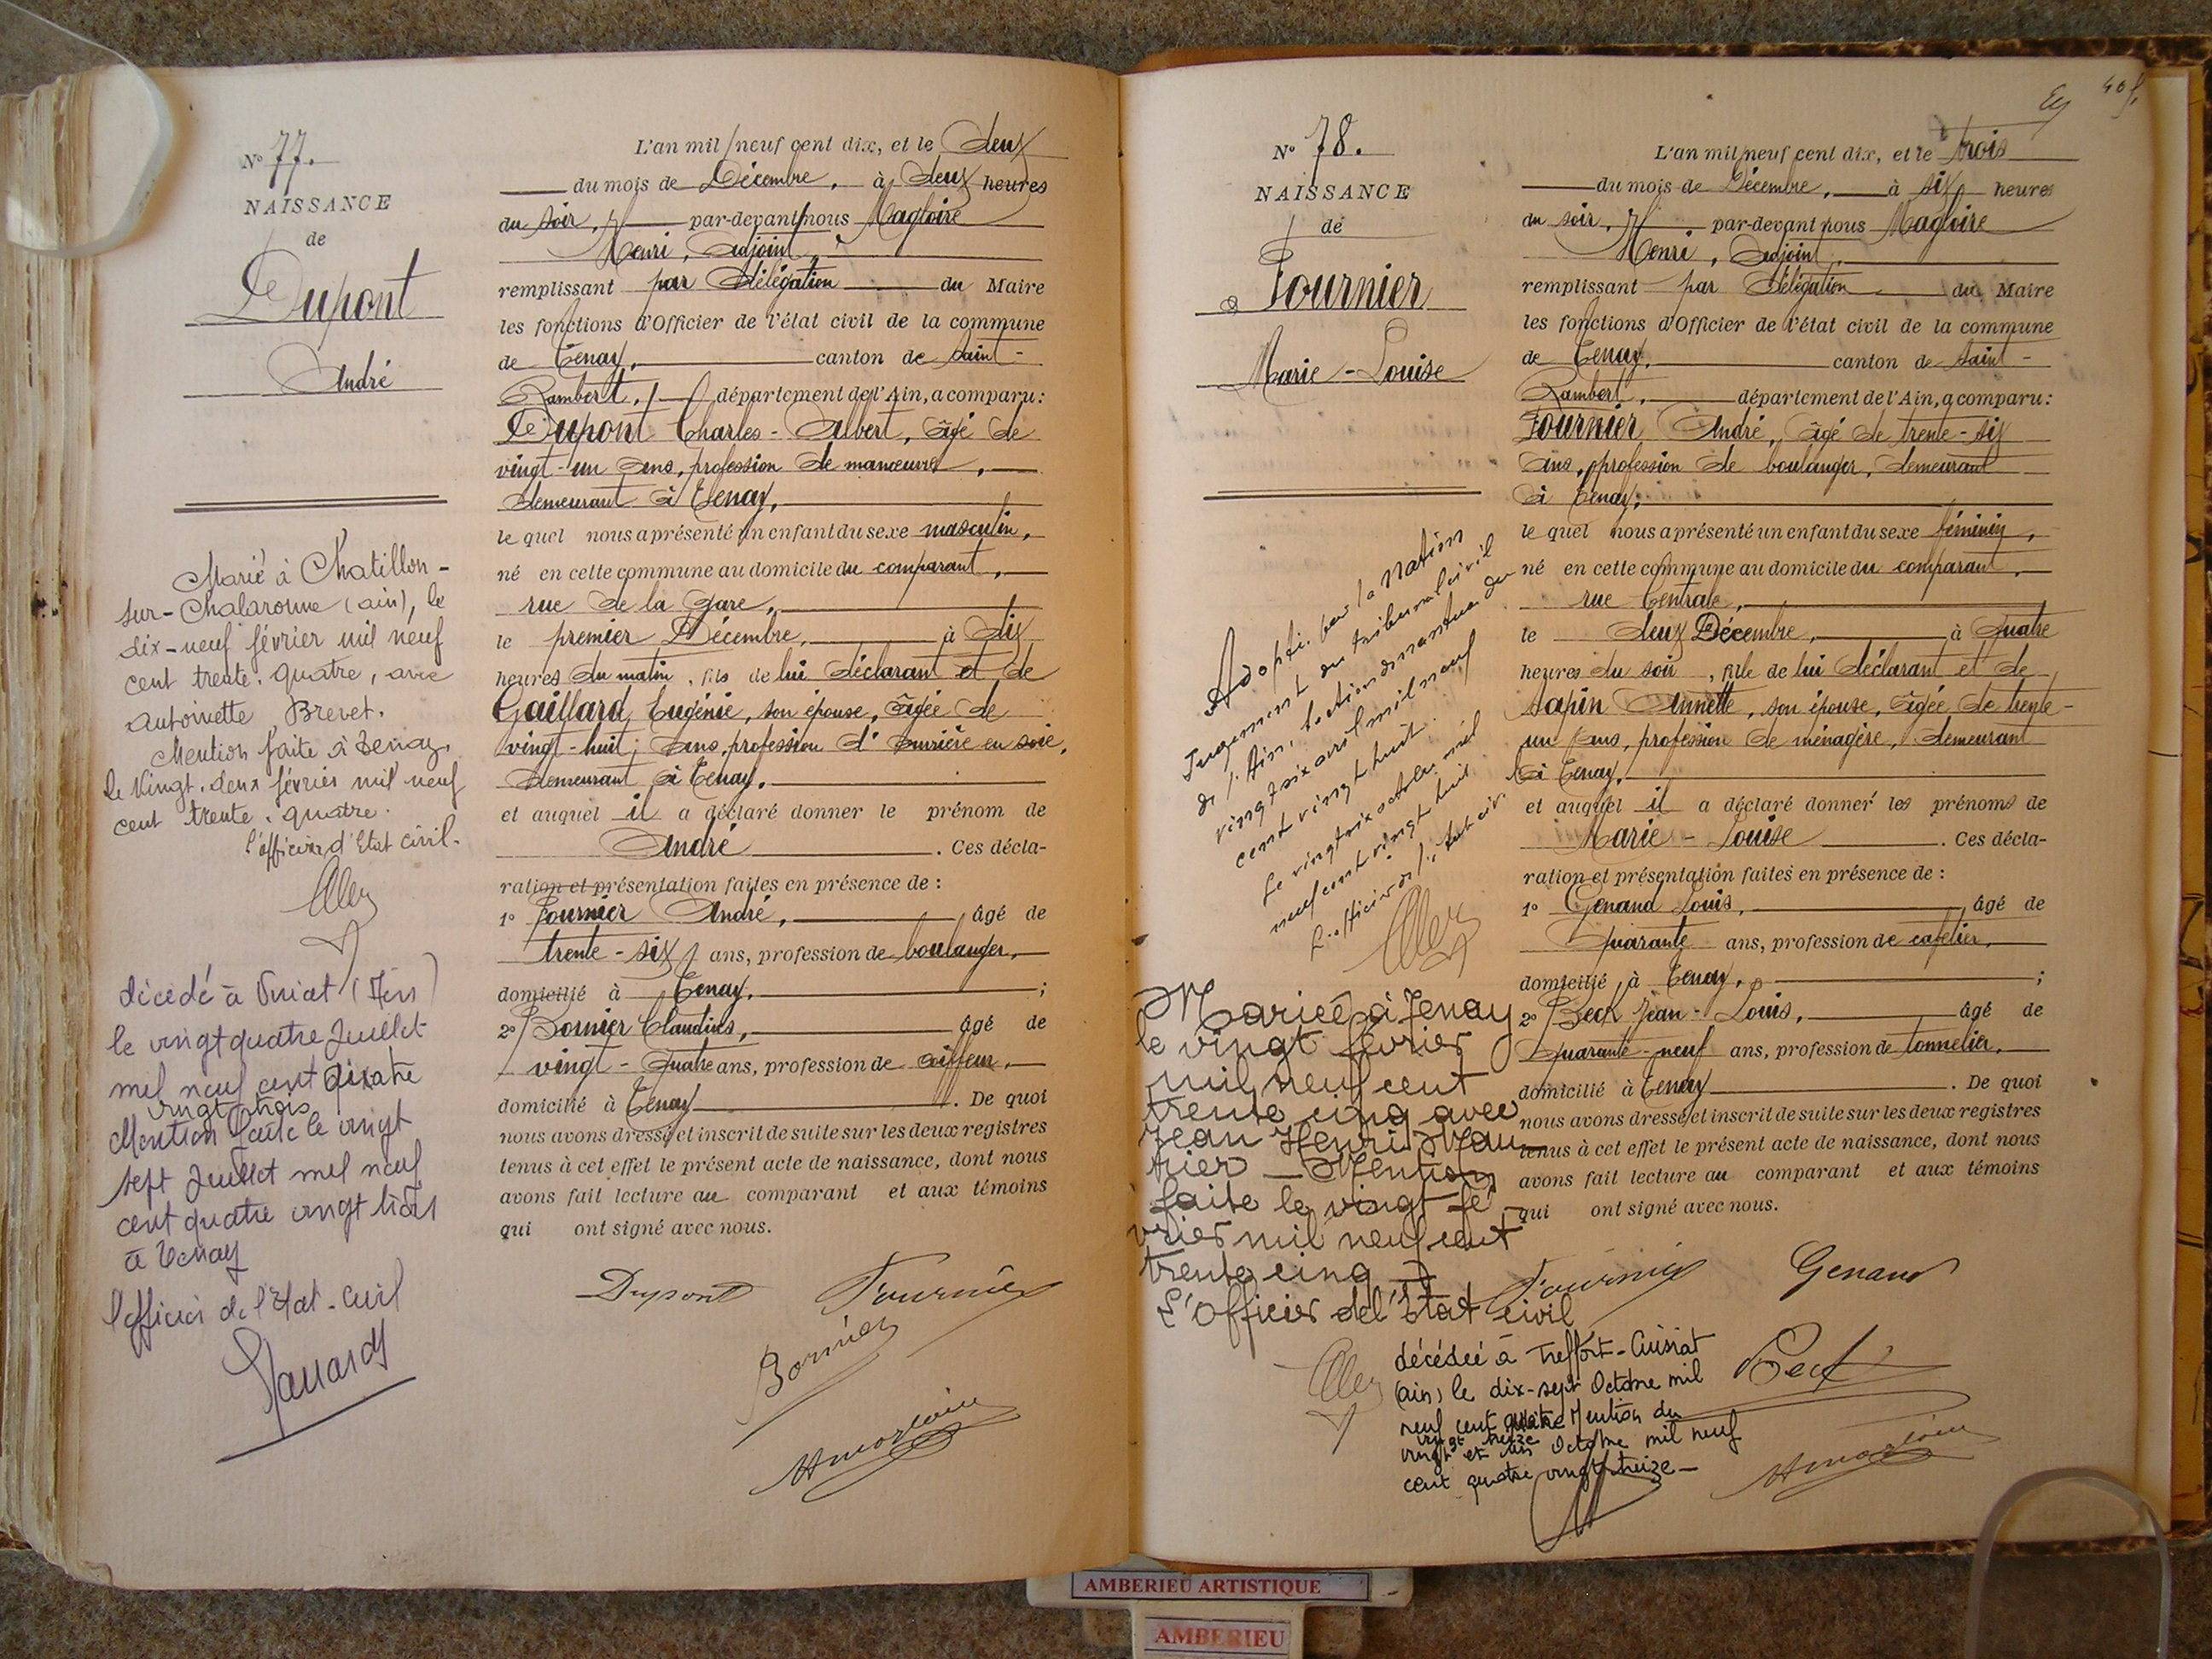 N° 77.
NAISSANCE
de
Dupont
André
Marié à Chatillon-
sur-Chalaronne (ain), le
dix-neuf février mil neuf
cent trente-quatre, avec
Antoinette Brevet.
Mention faite à Tenay,
le vingt-deux février mil neuf
cent trente-quatre.
l'officier d'Etat civil.
décédé à Viriat (Ain)
le vingt quatre Juillet
mil neuf cent quatre
vingt trois
Mention faite le vingt
sept Juillet mil neuf
cent quatre vingt trois
à Tenay
l'officier de l'Etat-Civil
L'an mil neuf cent dix, et le deux
du mois de Décembre, à deux heures
du soir, par-devant nous Magloire
Henri, Adjoint,
remplissant par Délégation du Maire
les fonctions d'Officier de l'état civil de la commune
de Tenay, canton de Saint-
Rambert, département de l'Ain, a comparu:
Dupont Charles-Albert, âgé de
vingt-un ans, profession de manœuvre,
demeurant à Tenay,
le quel nous a présenté un enfant du sexe masculin,
né en cette commune au domicile du comparant,
rue de la gare,
le premier Décembre, à dix
heures du matin, fils de lui déclarant et de
Gaillard Eugénie, son épouse, âgée de
vingt-huit ans, profession d'ouvrière en soie,
demeurant à Tenay,
et auquel il a déclaré donner le prénom de
André. Ces décla-
ration et présentation faites en présence de :
1° Fournier André, âgé de
trente-six ans, profession de boulanger,
domicilié à Tenay, ;
2° Bornier Claudius, âgé de
vingt-quatre ans, profession de coiffeur,
domicilié à Tenay. De quoi
nous avons dressé et inscrit de suite sur les deux registres
tenus à cet effet le présent acte de naissance, dont nous
avons fait lecture au comparant et aux témoins
qui ont signé avec nous.
Dupont Fournier
Bornier
N° 78.
NAISSANCE
de
Fournier
Marie-Louise
Adoptée par la Nation
Jugement du tribunal civil
de l'Ain, section de Nantua du
vingt six avril mil neuf
cent vingt huit.
Le vingt six octobre mil
neuf cent vingt huit
L'officier de l'état civ.
Mariée à Tenay
le vingt février
mil neuf cent
trente cinq avec
Jean Henri Mau-
rier - Mention
faite le vingt fé-
vrier mil neuf cent
trente cinq
L'Officier de l'Etat civil
décédée à Treffort-Cuisiat
(ain) le dix-sept Octobre mil
neuf cent quatre Mention du
vingt treize
vingt et un Octobre mil neuf
cent quatre vingt treize -
L'an mil neuf cent dix, et le trois
du mois de Décembre, à six heures
du soir, par-devant nous Magloire
Henri, Adjoint,
remplissant par Délégation du Maire
les fonctions d'Officier de l'état civil de la commune
de Tenay, canton de Saint-
Rambert, département de l'Ain, a comparu:
Fournier André, âgé de trente-six
ans, profession de boulanger, demeurant
à Tenay,
le quel nous a présenté un enfant du sexe féminin,
né en cette commune au domicile du comparant,
rue Centrale,
le deux Décembre, à quatre
heures du soir, fille de lui déclarant et de
Sapin Annette, son épouse, âgée de trente-
un ans, profession de ménagère, demeurant
à Tenay,
et auquel il a déclaré donner les prénoms de
Marie-Louise. Ces décla-
ration et présentation faites en présence de :
1° Genaud Louis, âgé de
quarante ans, profession de cafetier,
domicilié à Tenay, ;
2° Beck Jean-Louis, âgé de
quarante-neuf ans, profession de tonnelier,
domicilié à Tenay. De quoi
nous avons dressé et inscrit de suite sur les deux registres
tenus à cet effet le présent acte de naissance, dont nous
avons fait lecture au comparant et aux témoins
qui ont signé avec nous.
Fournier Genaud
Beck
AMBERIEU ARTISTIQUE
AMBERIEU